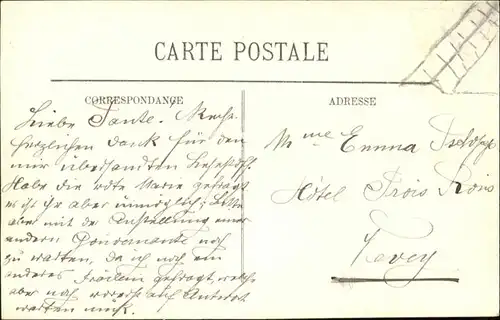 CARTE POSTALE
CORRESPONDANCE
Liebe Tante. Recht
herzlichen Dank für den
mir übersandten
Habe die rote Marie gefragt
es ist ihr aber unmöglich; Bitte
aber mit der Anstellung einer
andern Gouvernante noch
zu warten, da ich noch ein
anderes Fräulein gefragt, welche
aber noch auf Antwort
warten muss.
ADRESSE
Mme Emma
Hôtel Trois Rois
Vevey